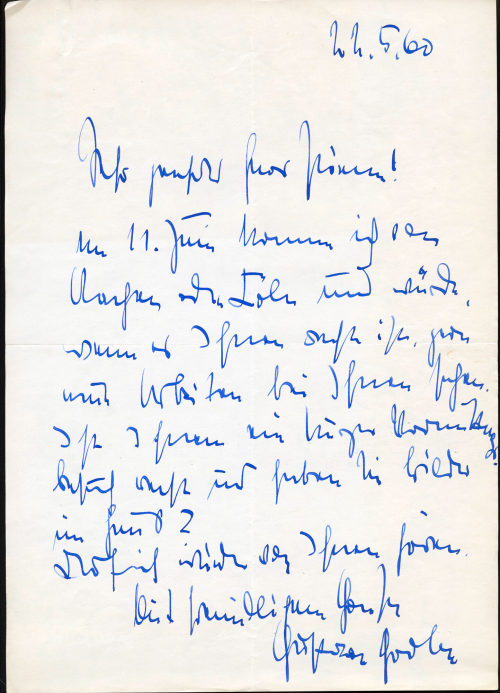 22.5.60
Sehr geehrter Herr
am 11. Juni komme ich von
Aachen oder Köln und würde,
wenn es Ihnen recht ist, gern
neue Arbeiten bei Ihnen sehen.
Ist Ihnen ein kurzer Vormittags-
besuch recht und haben Sie Bilder
im Haus?
Hoffentlich würde von Ihnen hören.
Mit freundlichem Gruß